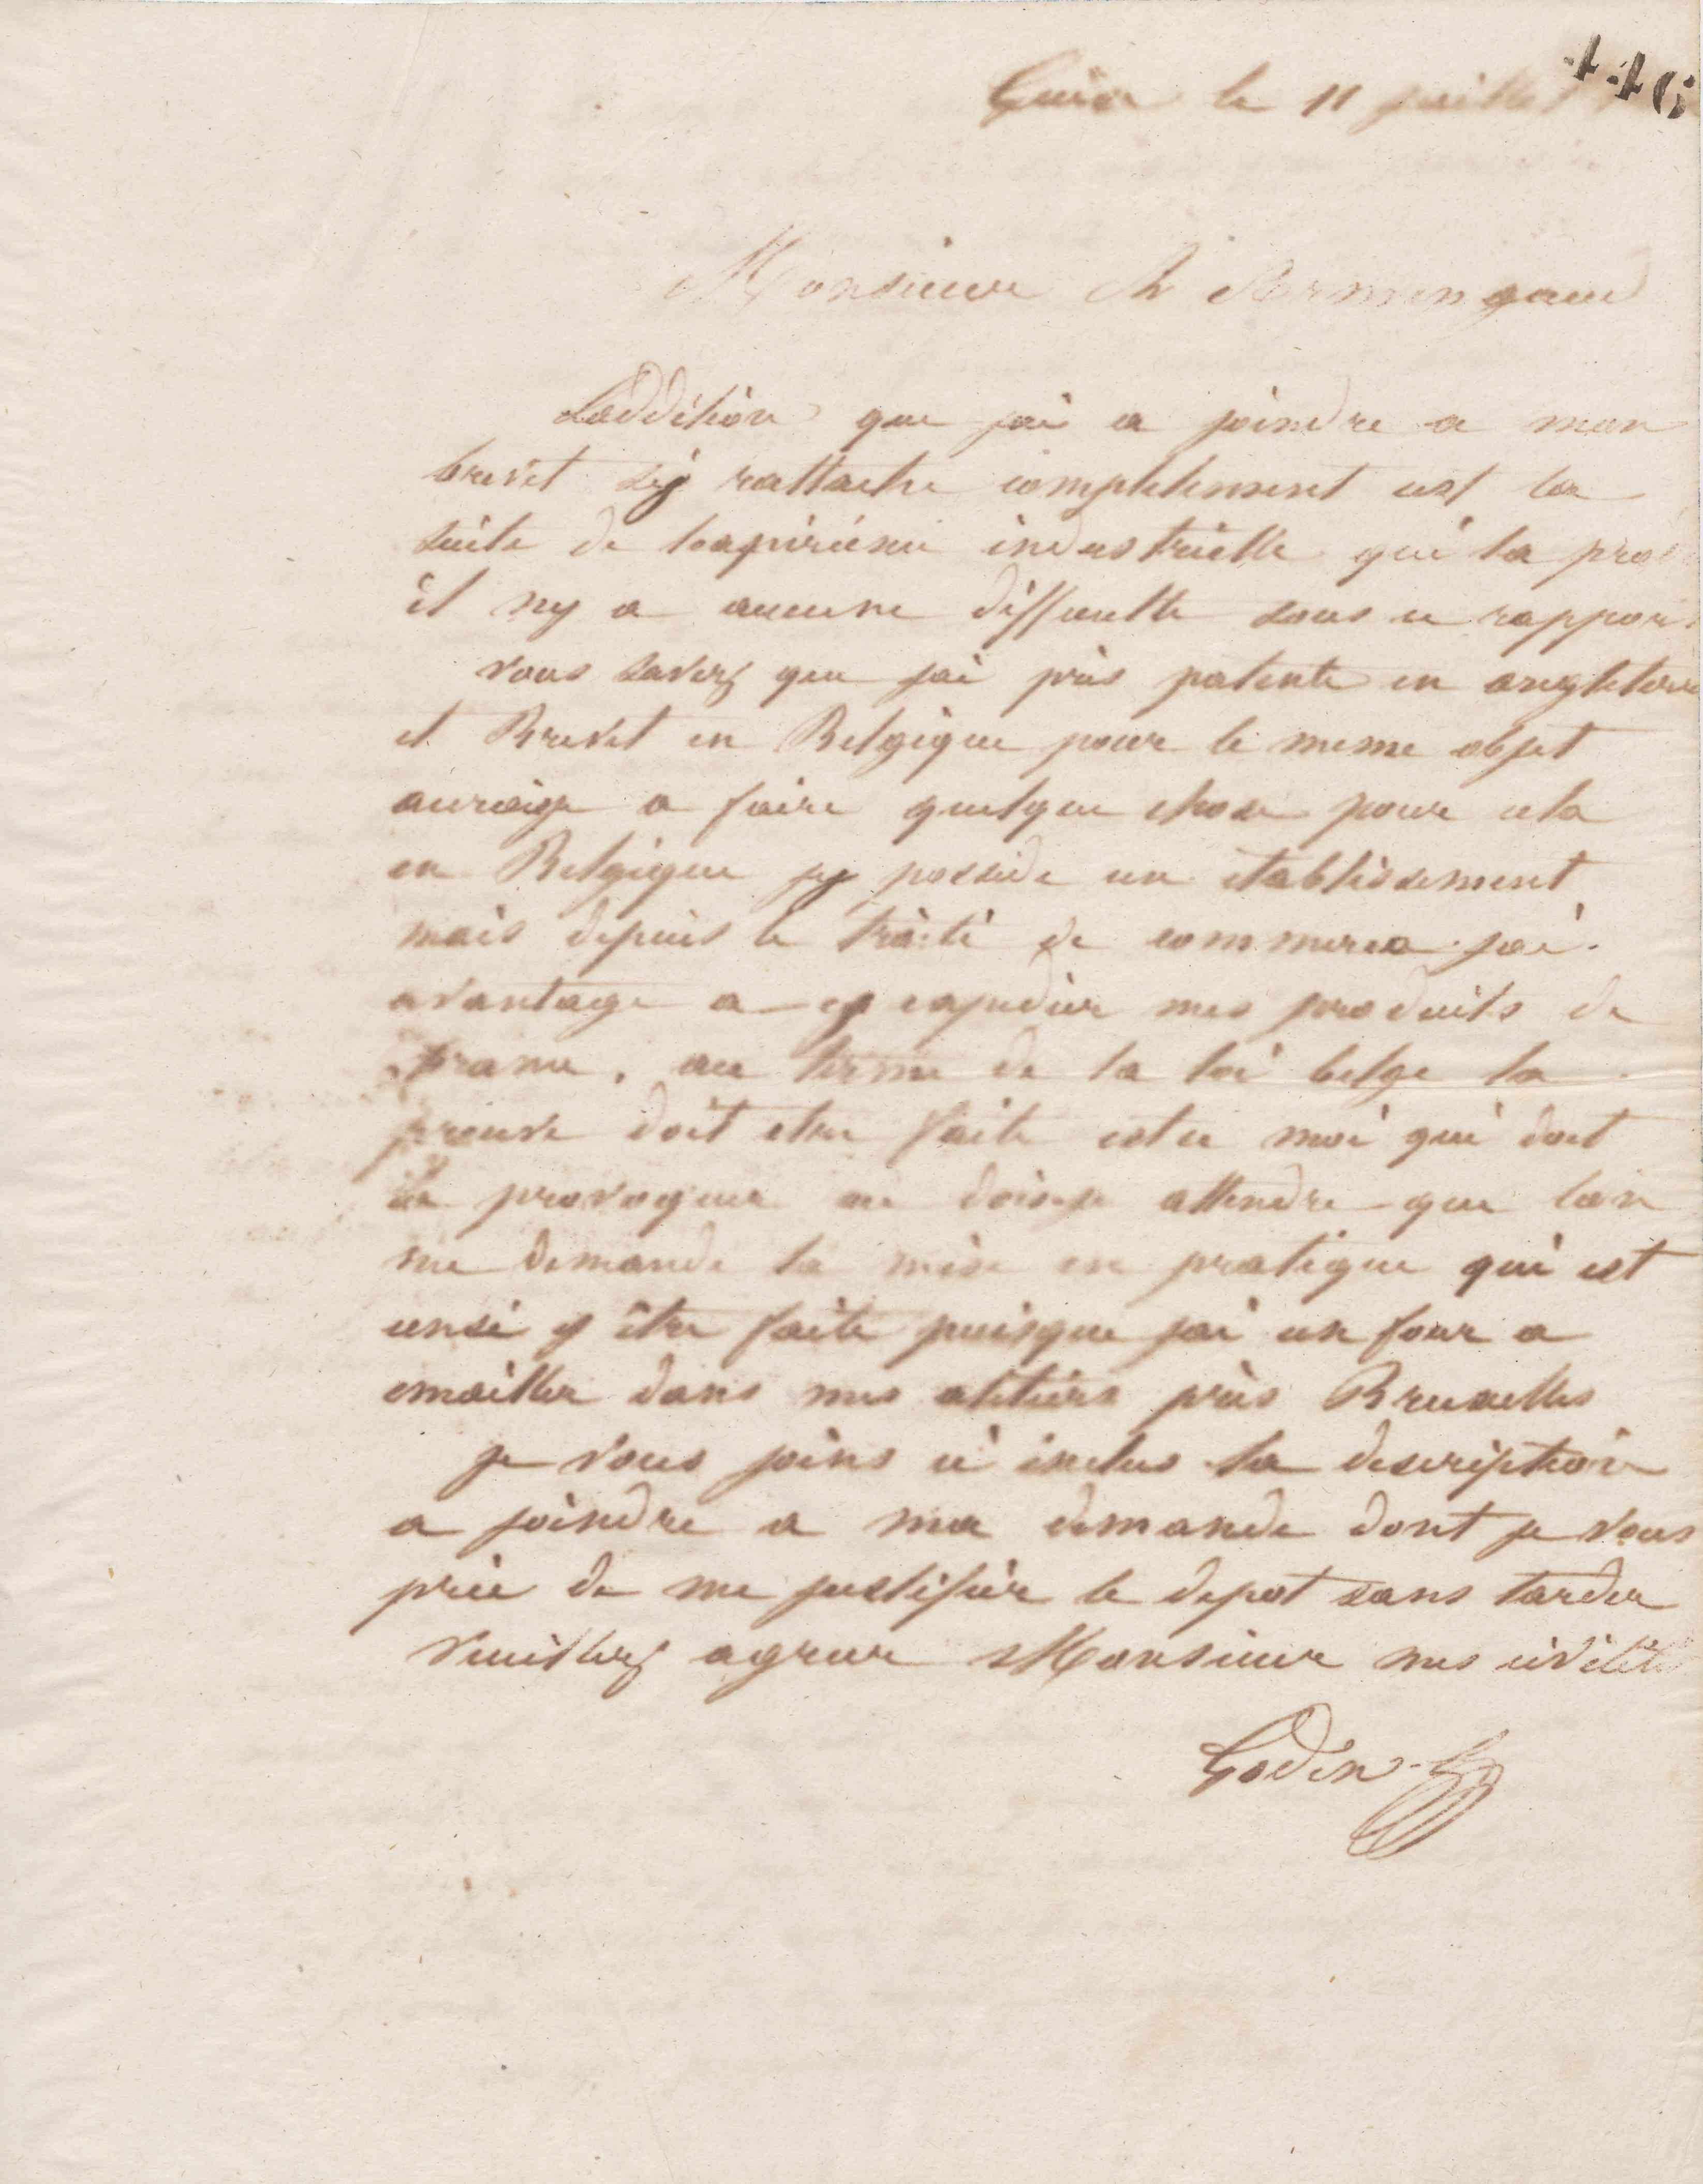 446
Guise le 11 juillet
Monsieur Ch Armengaud
Laddition que jai a joindre a mon
brevet sy rattache completement est la
suite de lexpérience industrielle qui la
il ny a aucune difficulte sous ce rapport
vous savez que jai pris patente en angleterre
et Brevet en Belgique pour le meme objet
auraije a faire quelque chose pour cela
en Belgique jy possede un etablissement
mais depuis le traité de commerce jai
avantage a y expedier mes produits de
france, au terme de la loi belge la
preuve doit etre faite est ce moi qui doit
la provoquer ou doisje attendre que lon
me demande la mise en pratique qui est
censé y être faite puisque jai un four a
emailler dans mes ateliers près Bruxelles
je vous joins ci inclus la description
a joindre a ma demande dont je vous
prie de me justifier le depot sans tarder
veuillez agreer Monsieur mes civilités
Godin